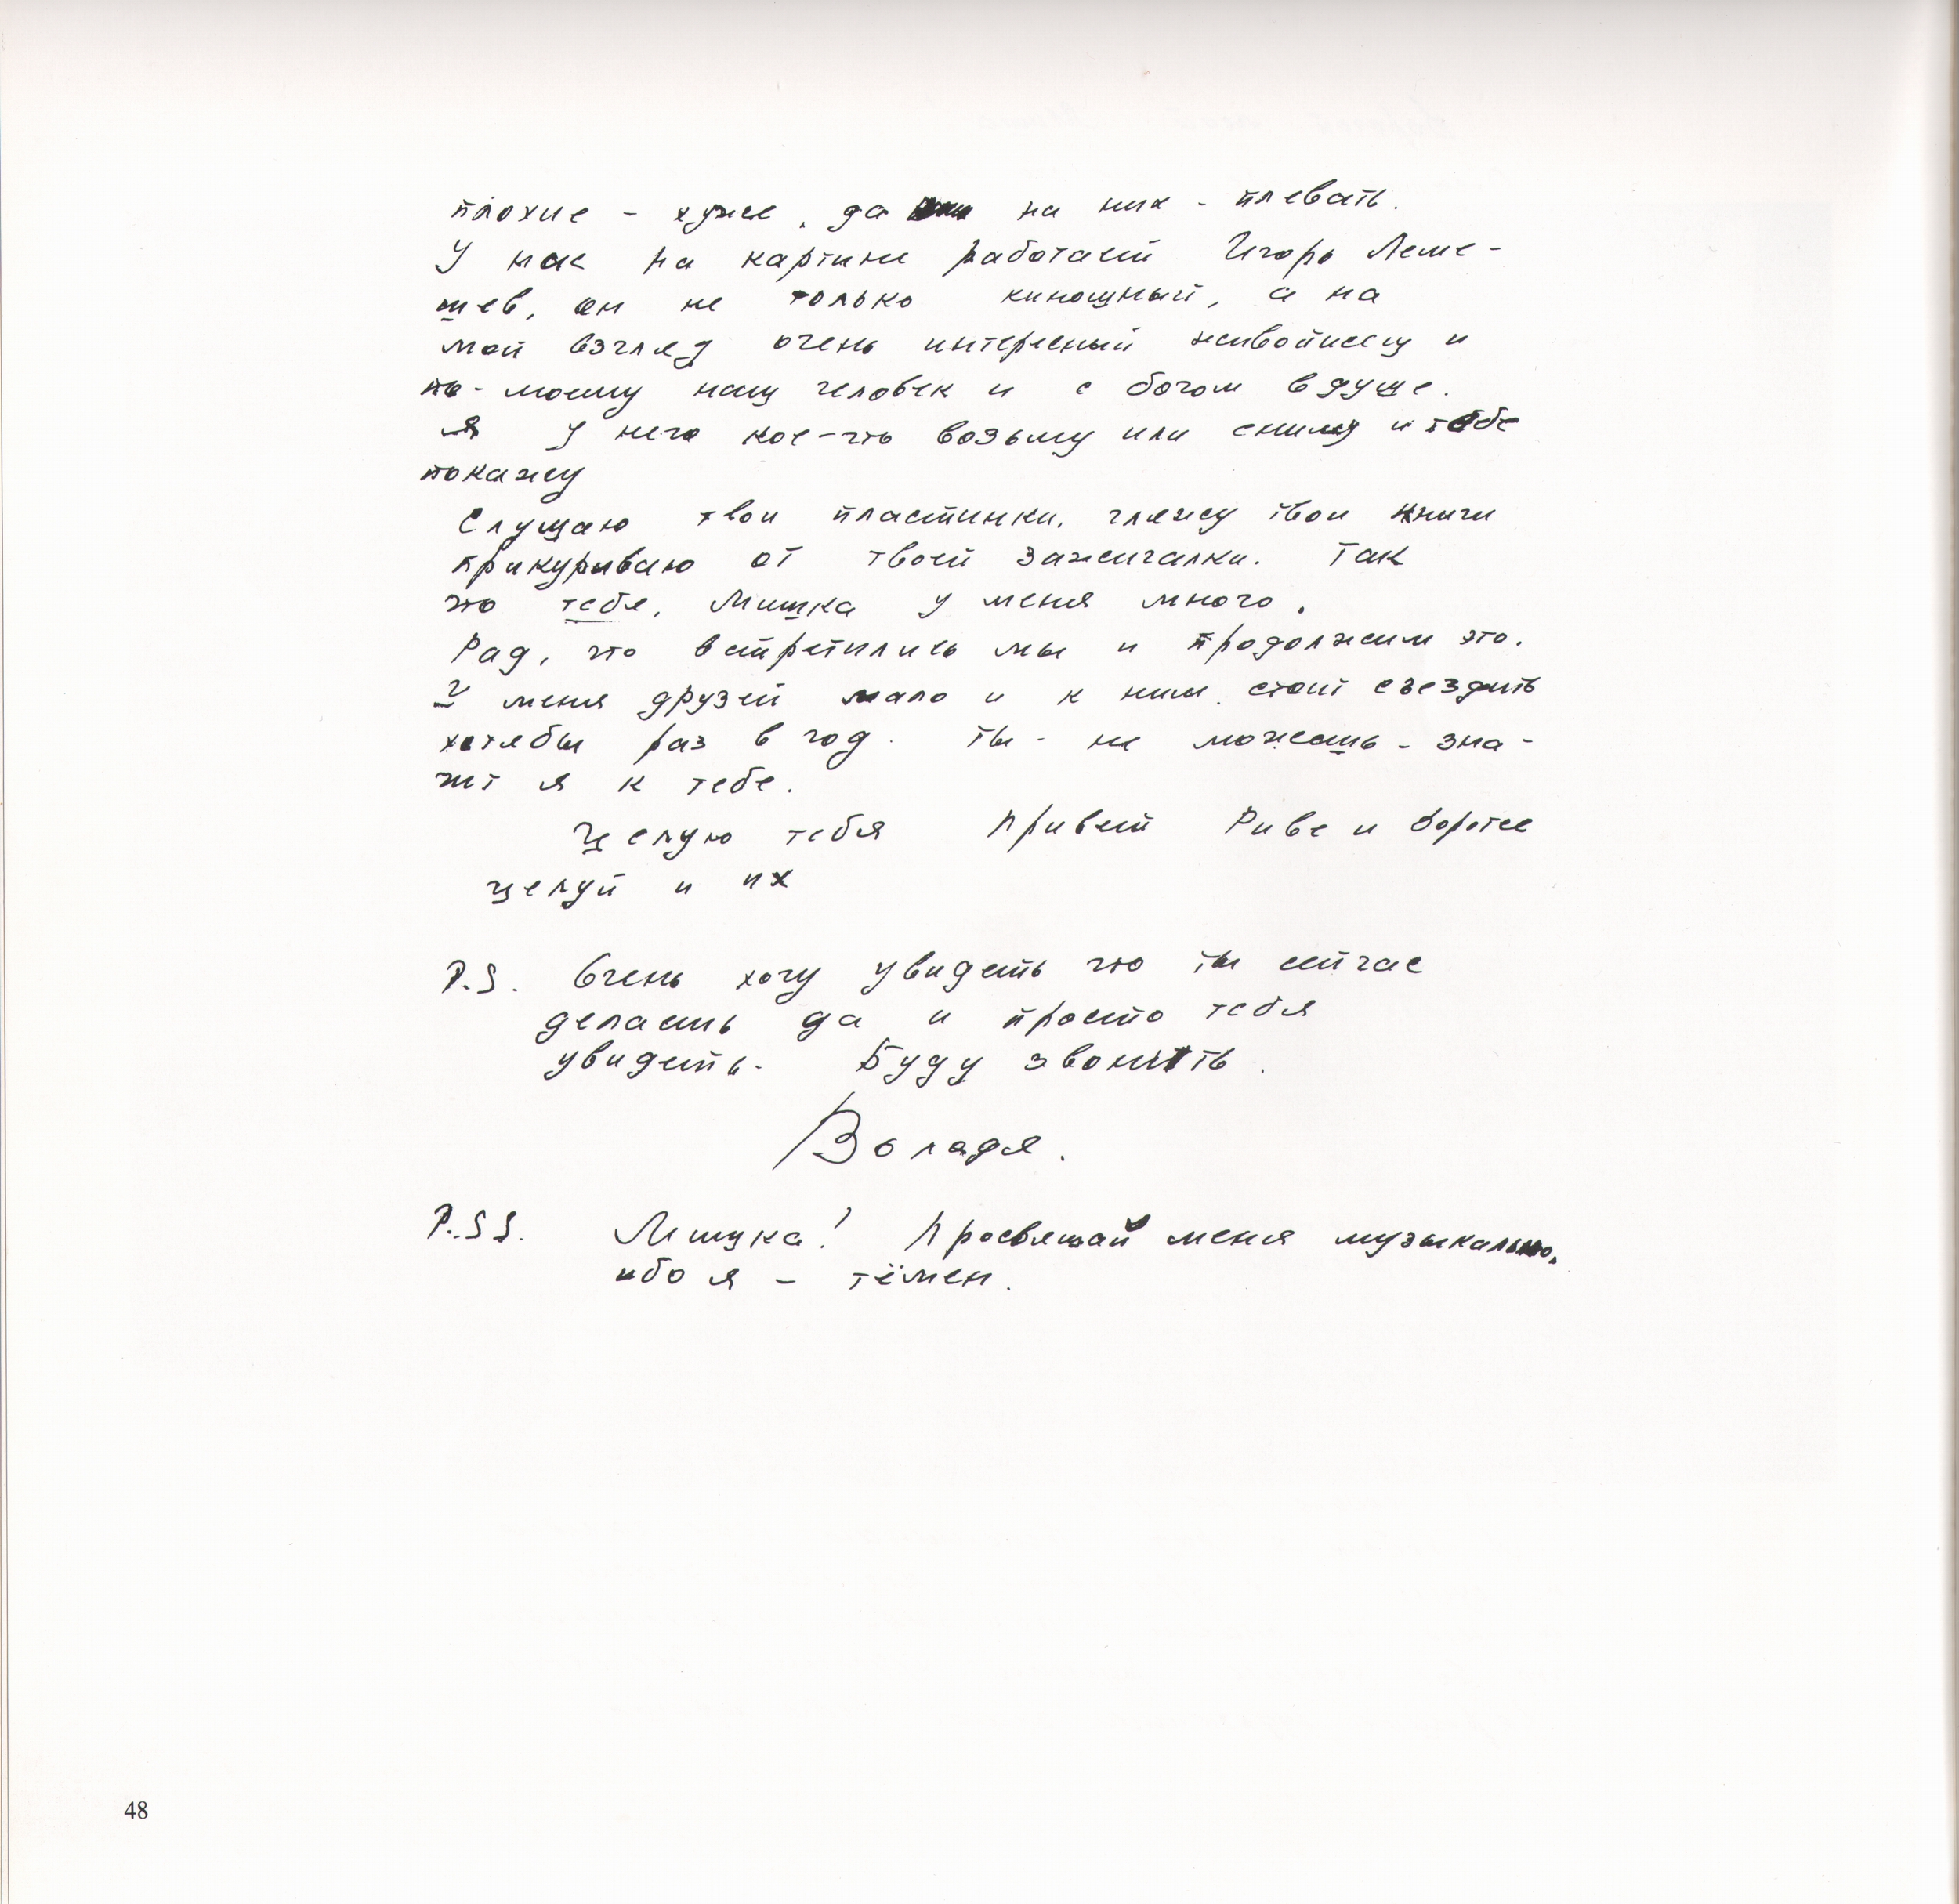 плохие - хуже, да на них - плевать.
У нас на картине работает Игорь Леме-
шев, он не только киношный, а на
мой взгляд очень интересный живописец и
по-моему наш человек и с богом в душе.
Я у него кое-что возьму или сниму и тебе
покажу
Слушаю твои пластинки, гляжу твои книги
прикуриваю от твоей зажигалки. Так
что тебя, Мишка у меня много.
Рад, что встретились мы и продолжим это.
У меня друзей мало и к ним стоит съездить
хотябы раз в год. Ты - не можешь - зна-
чит я к тебе.
Целую тебя Привет Риве и Доротее
целуй и их
P.S. Очень хочу увидеть что ты сейчас
делаешь да и просто тебя
увидеть. Буду звонить.
Володя.
P.S S. Мишка! Просвещай меня музыкально,
ибо я - тёмен.
48